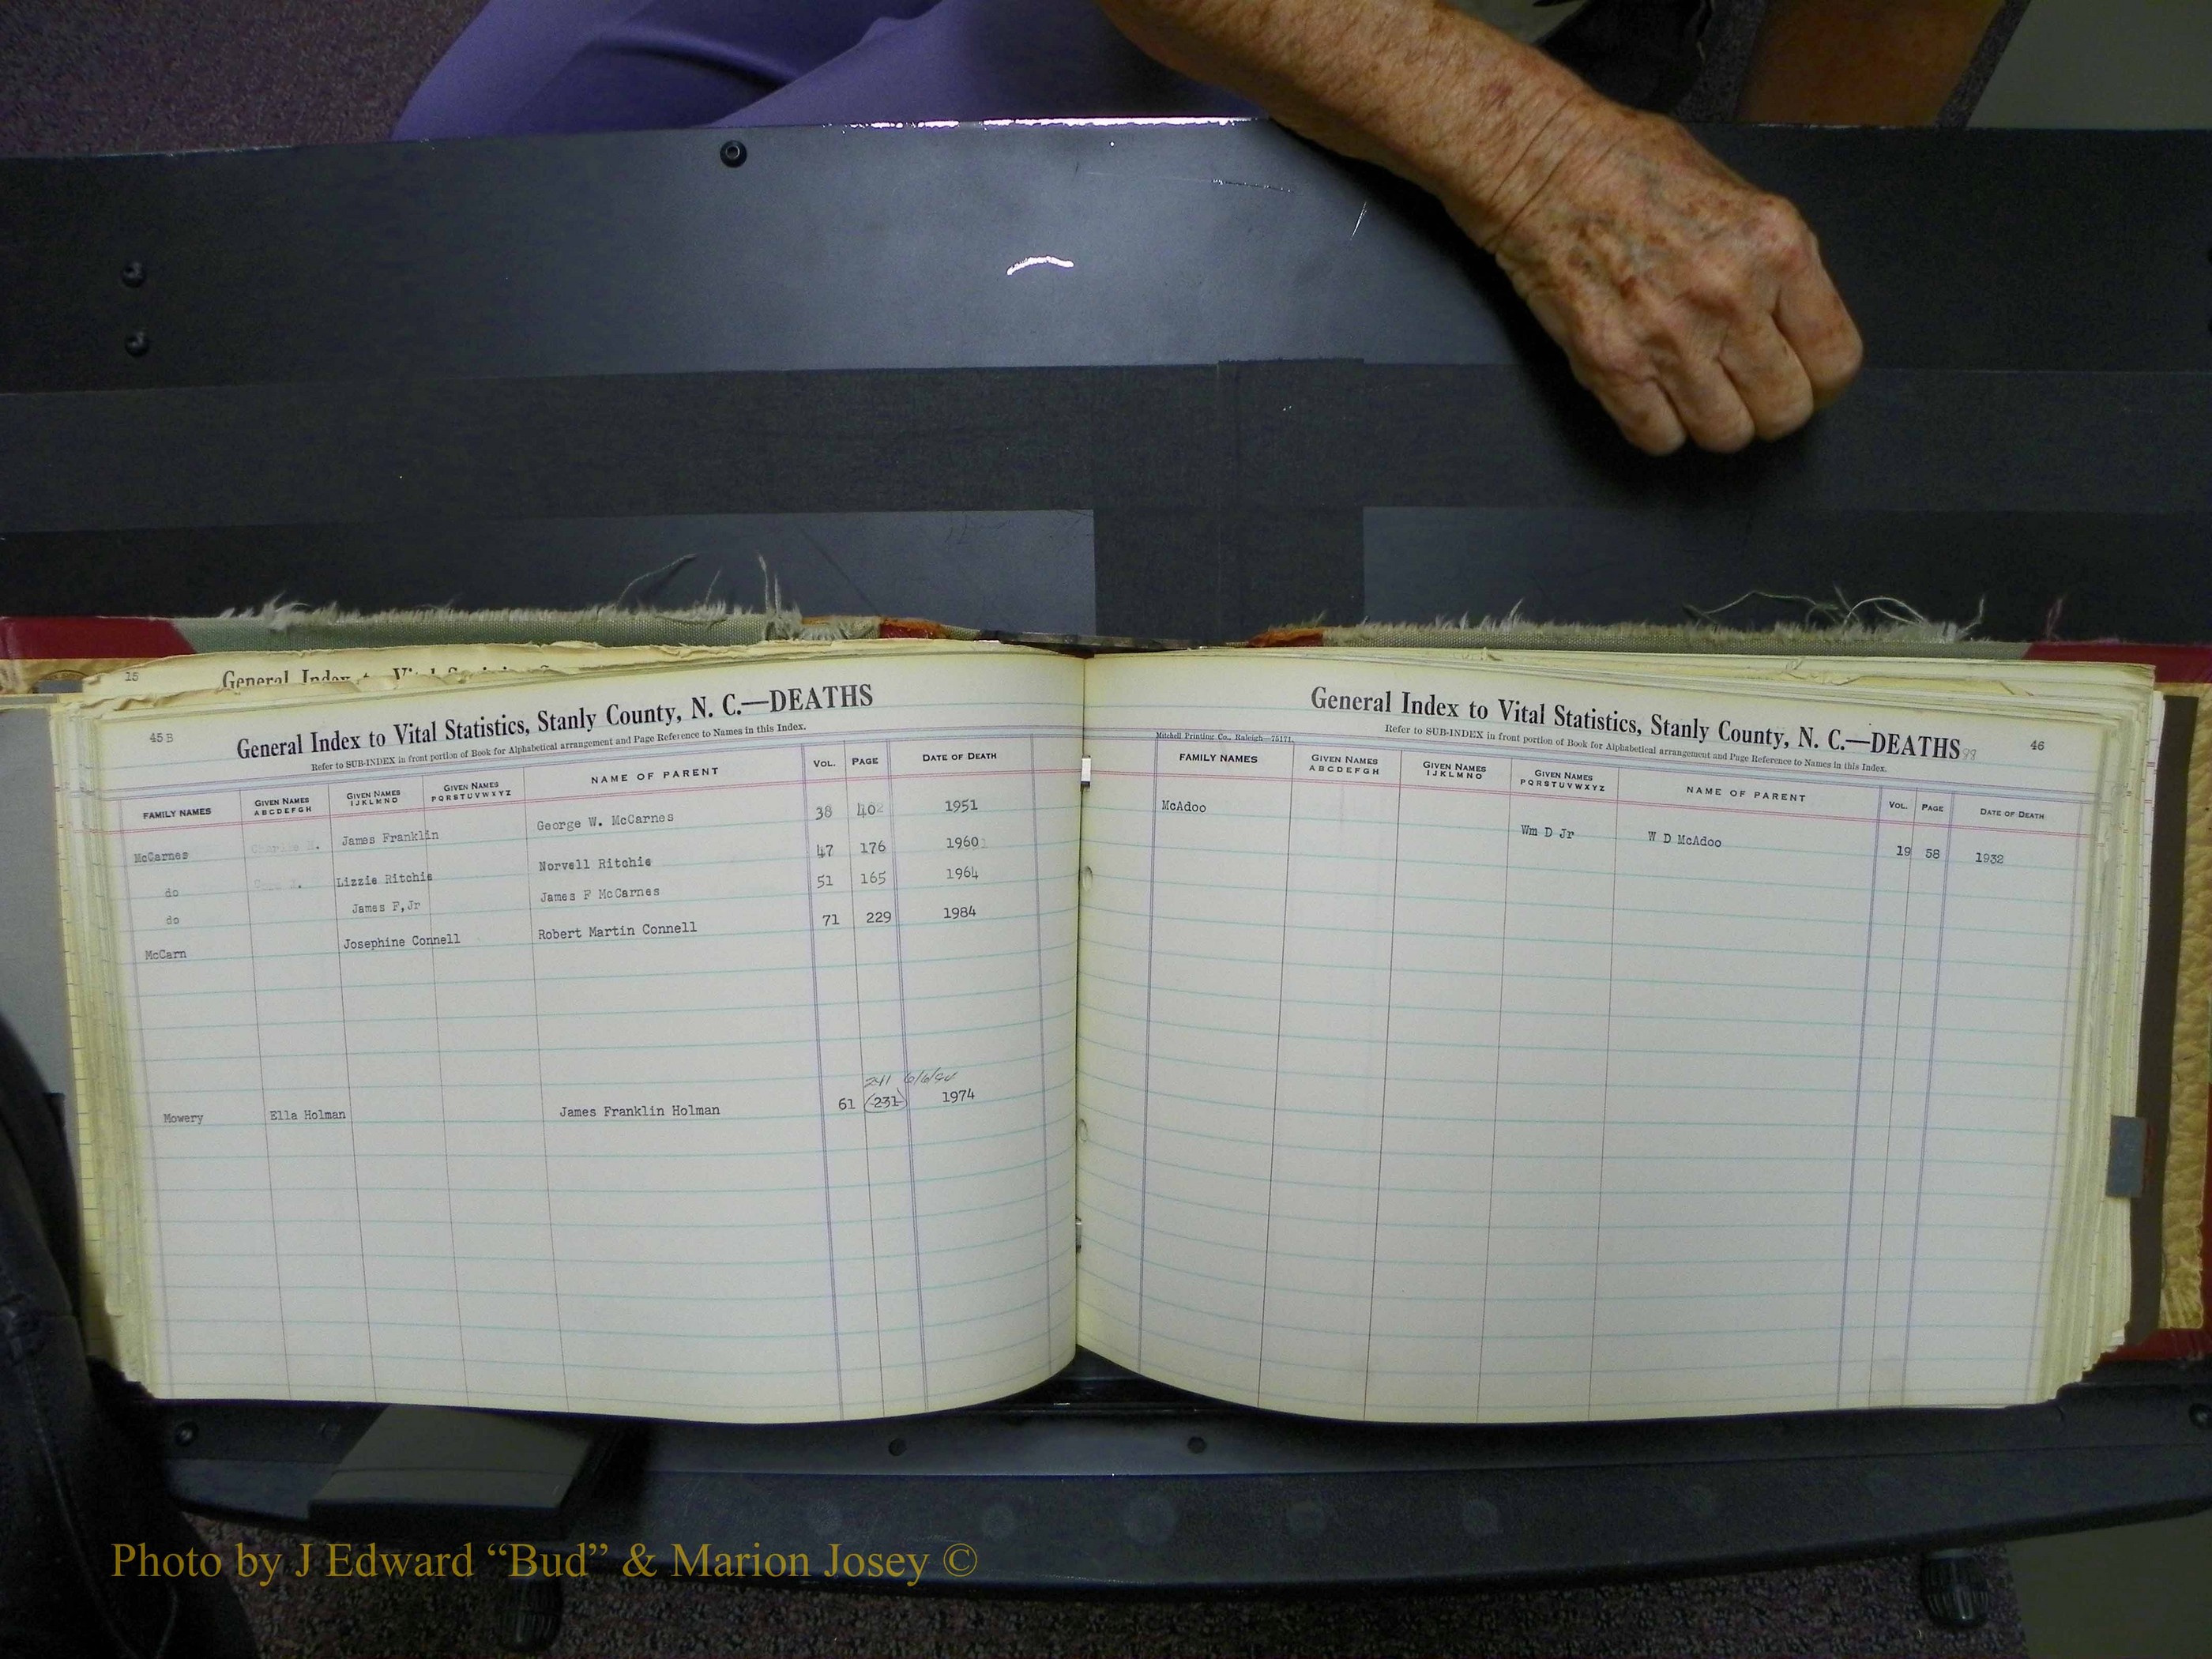 15 General Index to Vital Statistics
45 B
General Index to Vital Statistics, Stanly County, N. C.—DEATHS
Refer to SUB-INDEX in front portion of Book for Alphabetical arrangement and Page Reference to Names in this Index.
FAMILY NAMES GIVEN NAMES ABCDEFGH GIVEN NAMES IJKLMNO GIVEN NAMES PQRSTUVWXYZ NAME OF PARENT VOL. PAGE DATE OF DEATH
McCarnes James Franklin George W. McCarnes 38 402 1951
do Lizzie Ritchie Norvell Ritchie 47 176 1960
do James F,Jr James F McCarnes 51 165 1964
McCarn Josephine Connell Robert Martin Connell 71 229 1984
241
Mowery Ella Holman James Franklin Holman 61 (231) 1974
46
General Index to Vital Statistics, Stanly County, N. C.—DEATHS
Refer to SUB-INDEX in front portion of Book for Alphabetical arrangement and Page Reference to Names in this Index.
Mitchell Printing Co., Raleigh—75171.
FAMILY NAMES GIVEN NAMES ABCDEFGH GIVEN NAMES IJKLMNO GIVEN NAMES PQRSTUVWXYZ NAME OF PARENT VOL. PAGE DATE OF DEATH
McAdoo Wm D Jr W D McAdoo 19 58 1932
Photo by J Edward “Bud” & Marion Josey ©